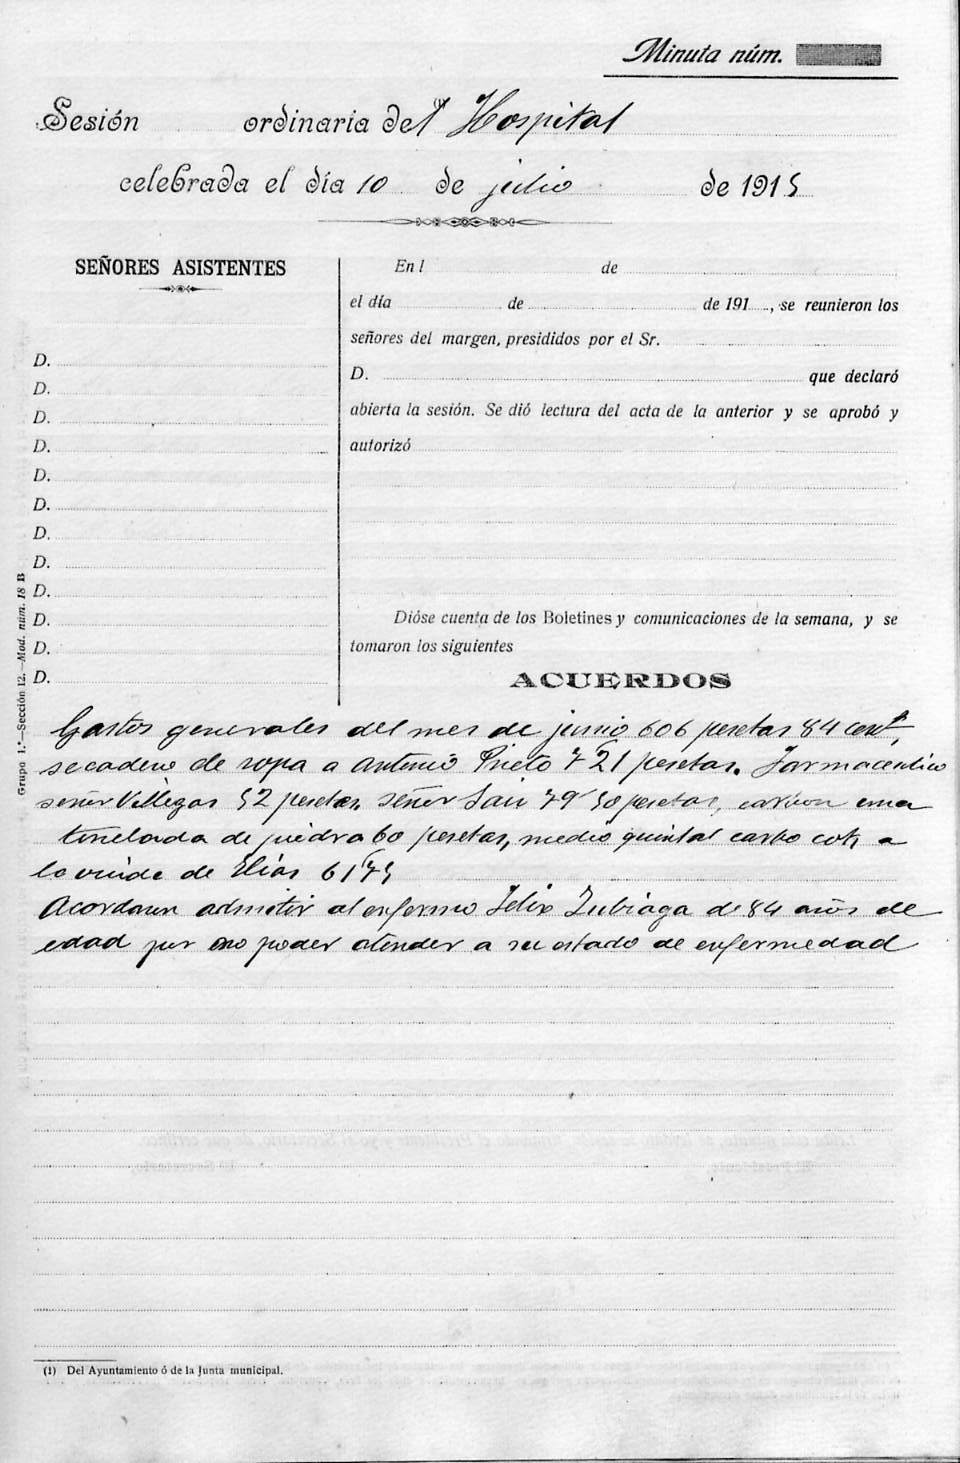 Minuta núm.
Sesión ordinaria del (1) Hospital
celebrada el día 10 de julio de 1915
SEÑORES ASISTENTES
D.
D.
D.
D.
D.
D.
D.
D.
D.
D.
D.
D.
En l de
el día de de 191 , se reunieron los
señores del margen, presididos por el Sr.
D. que declaró
abierta la sesión. Se dió lectura del acta de la anterior y se aprobó y
autorizó
Dióse cuenta de los Boletines y comunicaciones de la semana, y se
tomaron los siguientes
ACUERDOS
Gastos generales del mes de junio 606 pesetas 84 cent
secadero de ropa a Antonio Prieto 721 pesetas. Farmacéutico
señor Villegas 52 pesetas, señor Saii 79 50 pesetas, carbon una
tonelada de piedra 60 pesetas, medio quintal carbo cok a
la viuda de Elías 6 1'75
Acordaron admitir al enfermo Félix Zubiaga de 84 años de
edad por no poder atender a su estado de enfermedad
Grupo 1.º—Sección 12.—Mod. núm. 18 B
(1) Del Ayuntamiento ó de la Junta municipal.